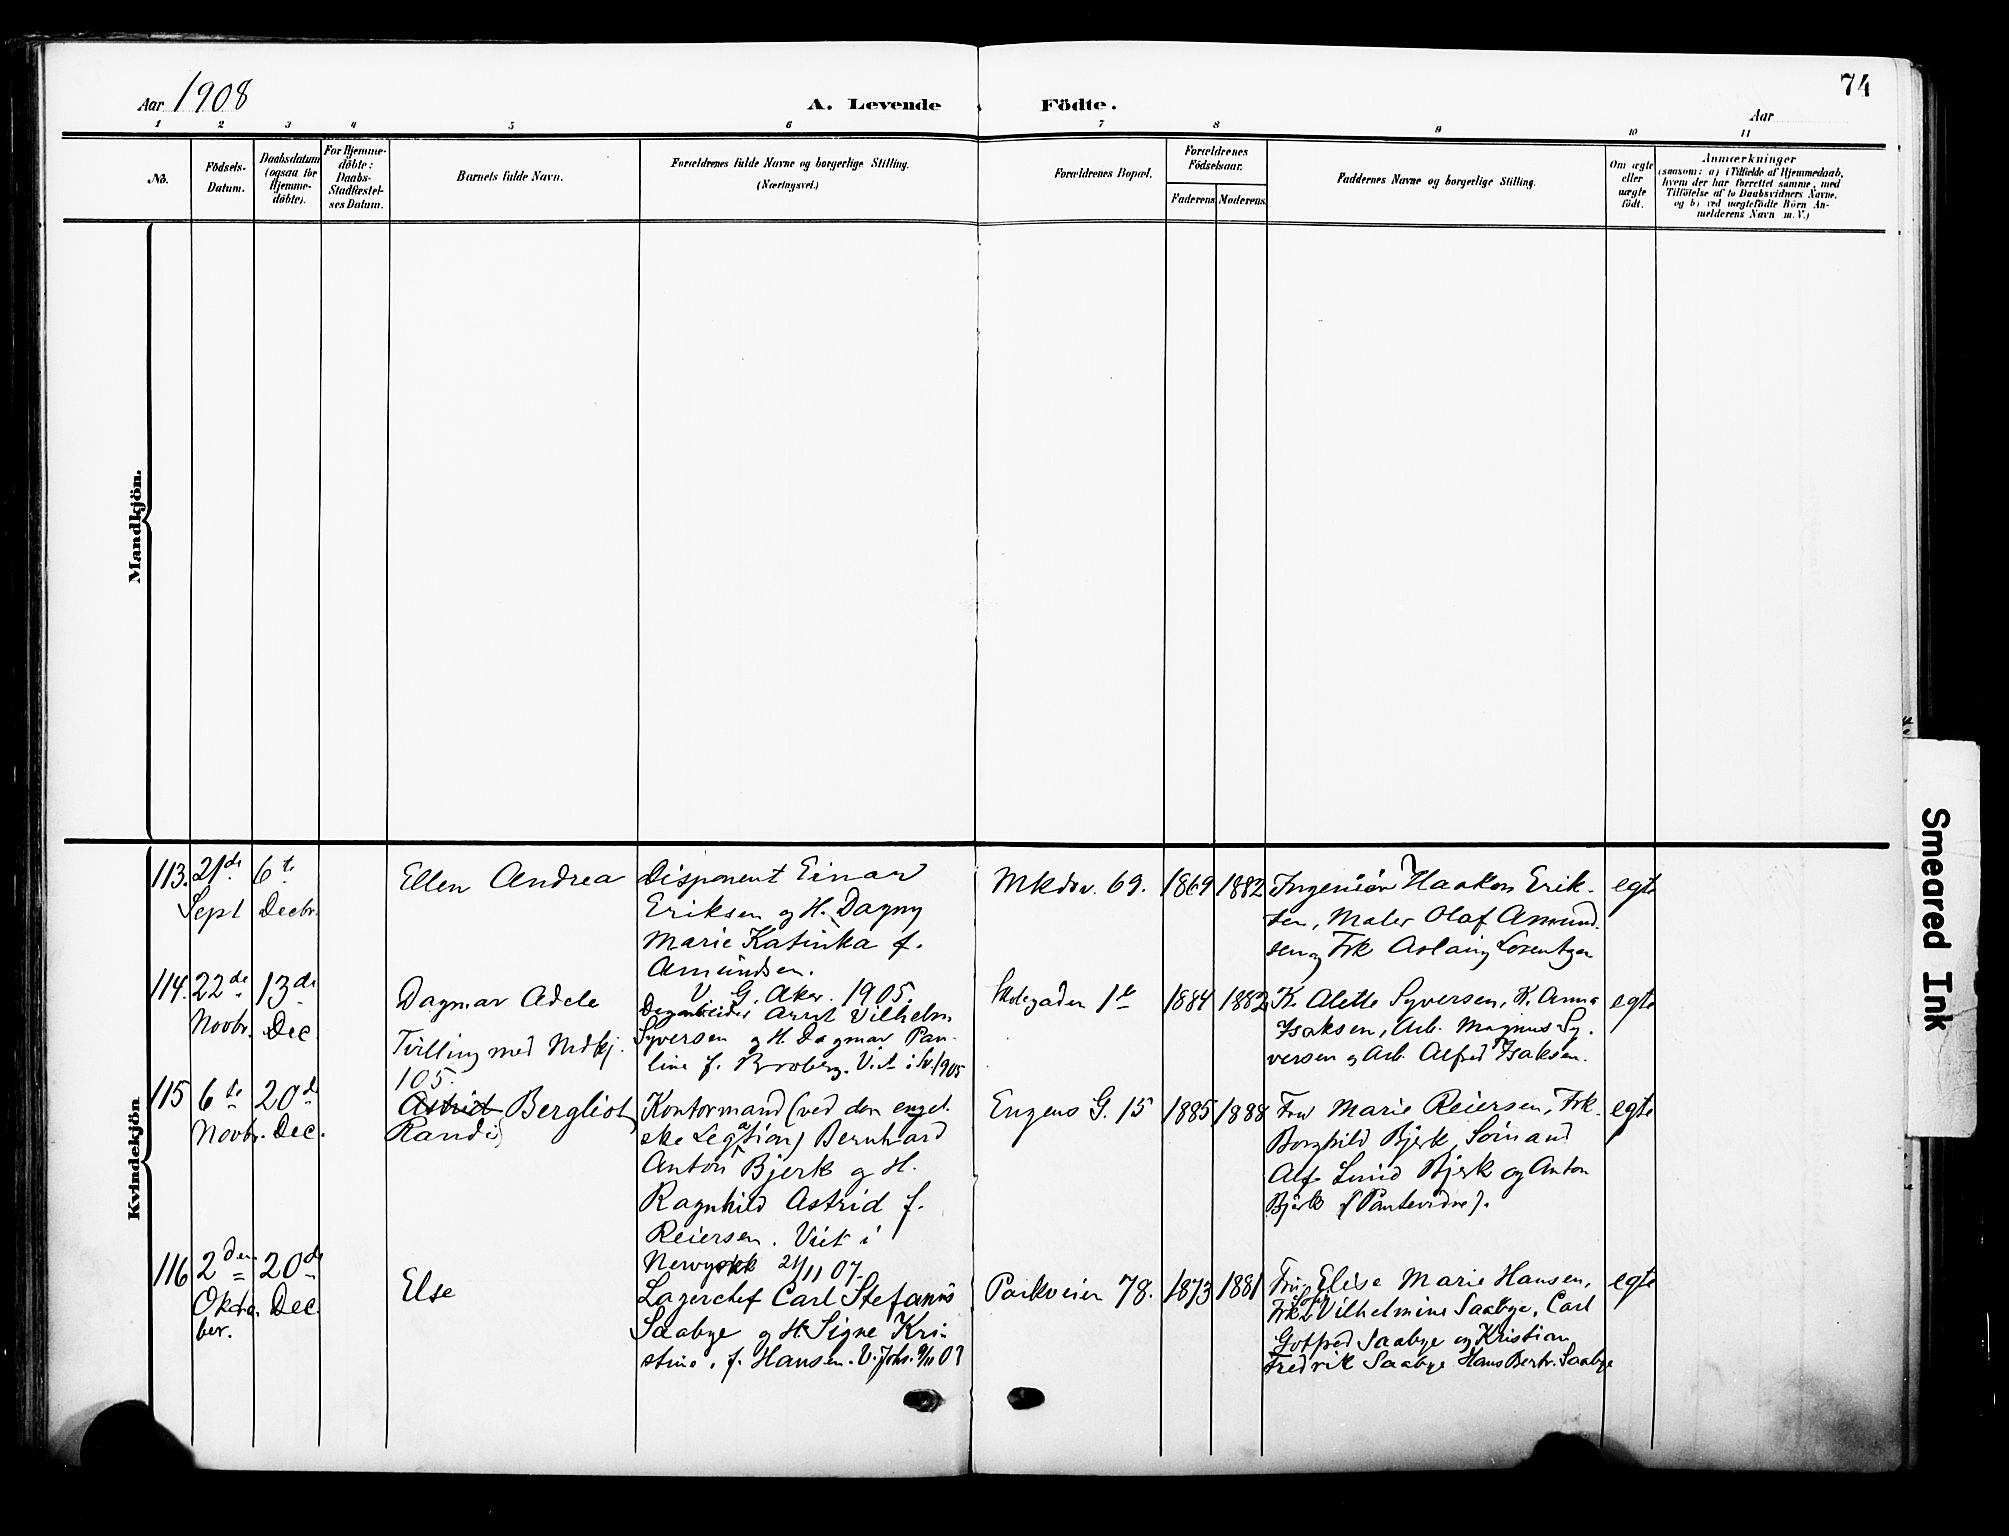 Aar 1908
A. Levende Födte.
74
Aar
1 2 3 4 5 6 7 8 9 10 11
No.
Födsels-
Datum.
Daabsdatum
(ogsaa for
Hjemme-
döbte).
For Hjemme-
döbte:
Daabs-
Stadfæstel-
ses Datum.
Barnets fulde Navn.
Forældrenes fulde Navne og borgerlige Stilling.
(Næringsvei.)
Forældrenes Bopæl.
Forældrenes
Födselsaar.
Faderens Moderens.
Faddernes Navne og borgerlige Stilling.
Om ægte
eller
uægte
födt.
Anmærkninger
(saasom: a) i Tilfælde af Hjemmedaab,
hvem der har forrettet samme, med
Tilföielse af to Daabsvidners Navne,
og b) ved uægtefödte Börn An-
melderens Navn m. V.)
Mandkjön.
Kvindekjön
113. 21de
Sept
6te
Decbr.
Ellen Andrea
Disponent Einar
Eriksen og H. Dagny
Marie Katinka f.
Amundsen.
V. G. Aker. 1905.
Mkdsv. 69.
1869 1882
Ingeniör Haakon Erik-
sen, Maler Olaf Amund-
sen og Frk Aslaug Lorentzen
egte
114. 22de
Novbr.
13de
Dec
Dagmar Adele
Tvilling med Mdkj.
105.
Dagarbeider Arnt Vilhelm
Syversen og H. Dagmar Pau-
line f. Broberg. Viet i 1905
Skolegaden 1b
1884 1882
K. Alette Syversen, K. Anna
Isaksen, Arb. Magnus Sy-
versen og Arb. Alfred Isaksen.
egte
115 6te
Novbr.
20de
Dec.
Astrid Bergliot
Randi
Kontormand (ved den engel-
ske Legation) Bernhard
Anton Bjerk og H.
Ragnhild Astrid f.
Reiersen. Viet i
Newyork 21/11 07.
Enzens G. 15
1885 1888
Fru Marie Reiersen, Frk.
Borghild Bjerk, Sömand
Alf Lund Bjerk og Anton
Bjerk
egte
116 2den
Okto-
ber.
20de
Dec.
Else
Lagerchef Carl Stefanus
Saabye og H. Signe Kri-
stine, f. Hansen. V. Johs. 9/11 07
Parkveien 78.
1873 1881
Fru Elise Marie Hansen,
Frk Vilhelmine Saabye, Carl
Gotfred Saabye og Kristian
Fredrik Saabye Hans Saabye
egte
Smeared Ink